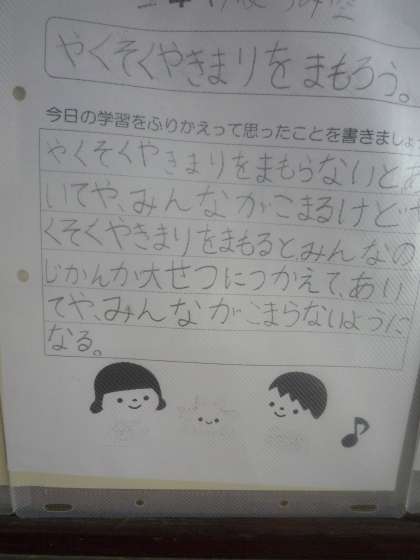 やくそくやきまりをまもろう。
今日の学習をふりかえって思ったことを書きましょ
やくそくやきまりをまもらないとあ
いてや、みんながこまるけどや
くそくやきまりをまもるとみんなの
じかんが大せつにつかえて、あい
てや、みんながこまらないように
なる。